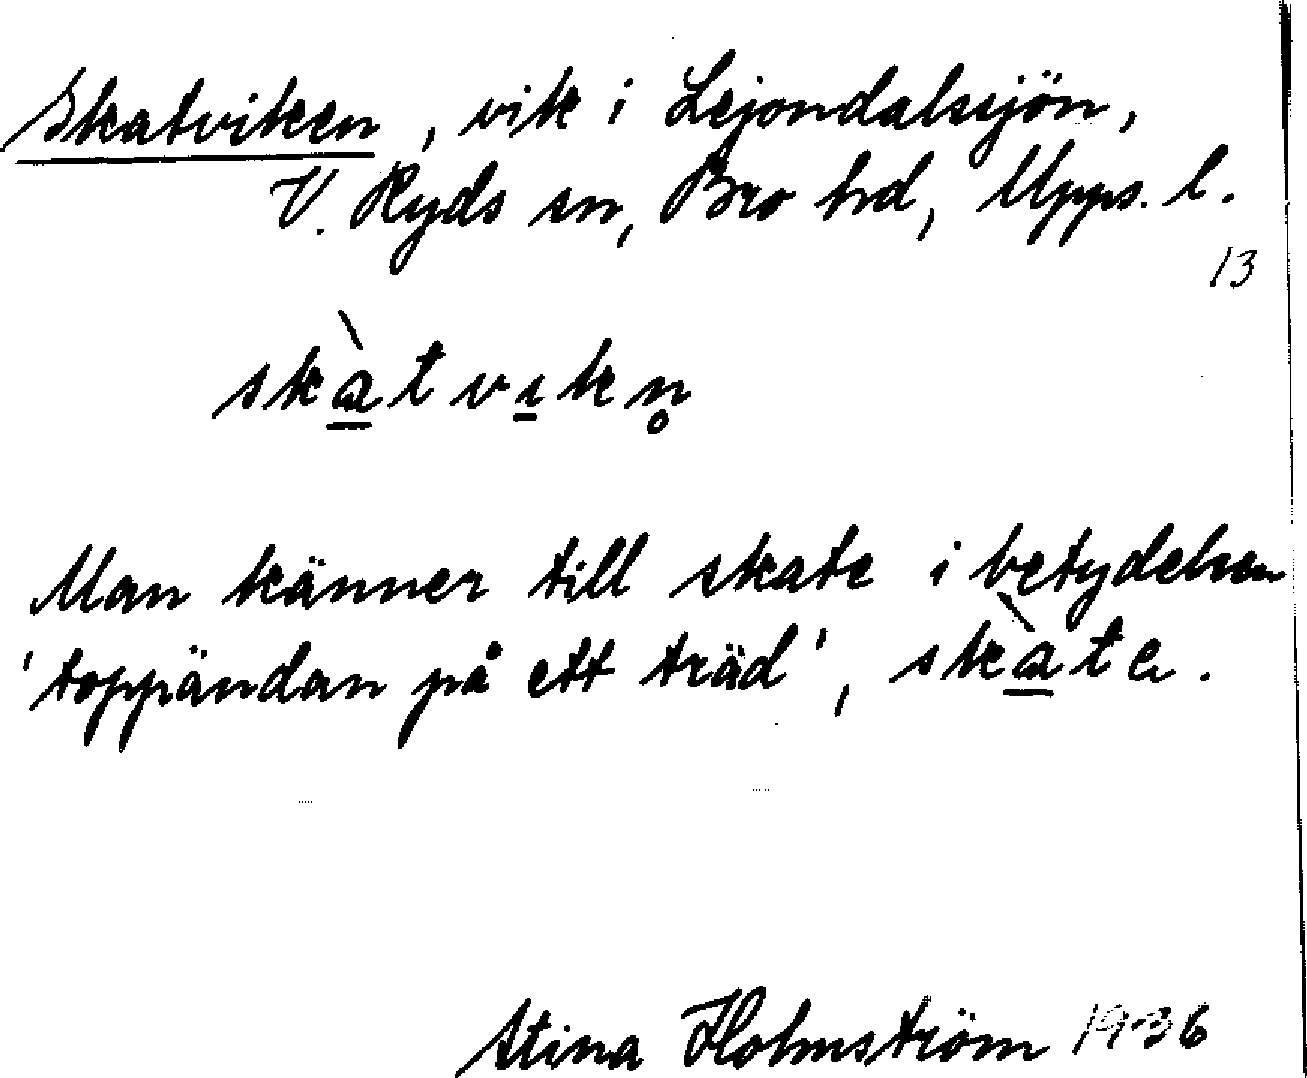 Skatviken, vik i Lejondalssjön,
V. Ryds sn, Bro hd, Upps. l.
13
skà̱tvı̱kn̥
Man känner till skate i betydelsen
'toppändan på ett träd', skà̱te.
Stina Holmström 1936